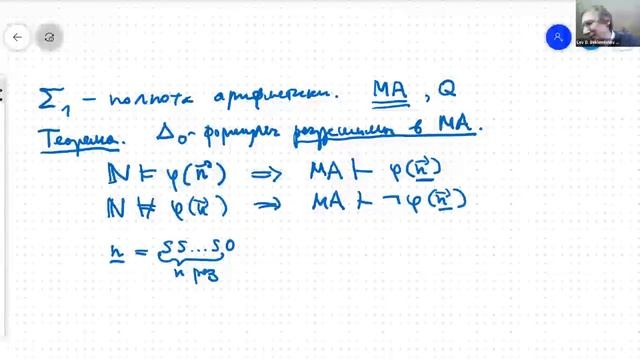 Σ₁ – полнота арифметики. MA, Q
Теорема. Δ₀-формулы разрешимы в MA.
ℕ ⊨ φ(n⃗) ⇒ MA ⊢ φ(n⃗)
ℕ ⊭ φ(n⃗) ⇒ MA ⊢ ¬φ(n⃗)
n = SS...S0
n раз